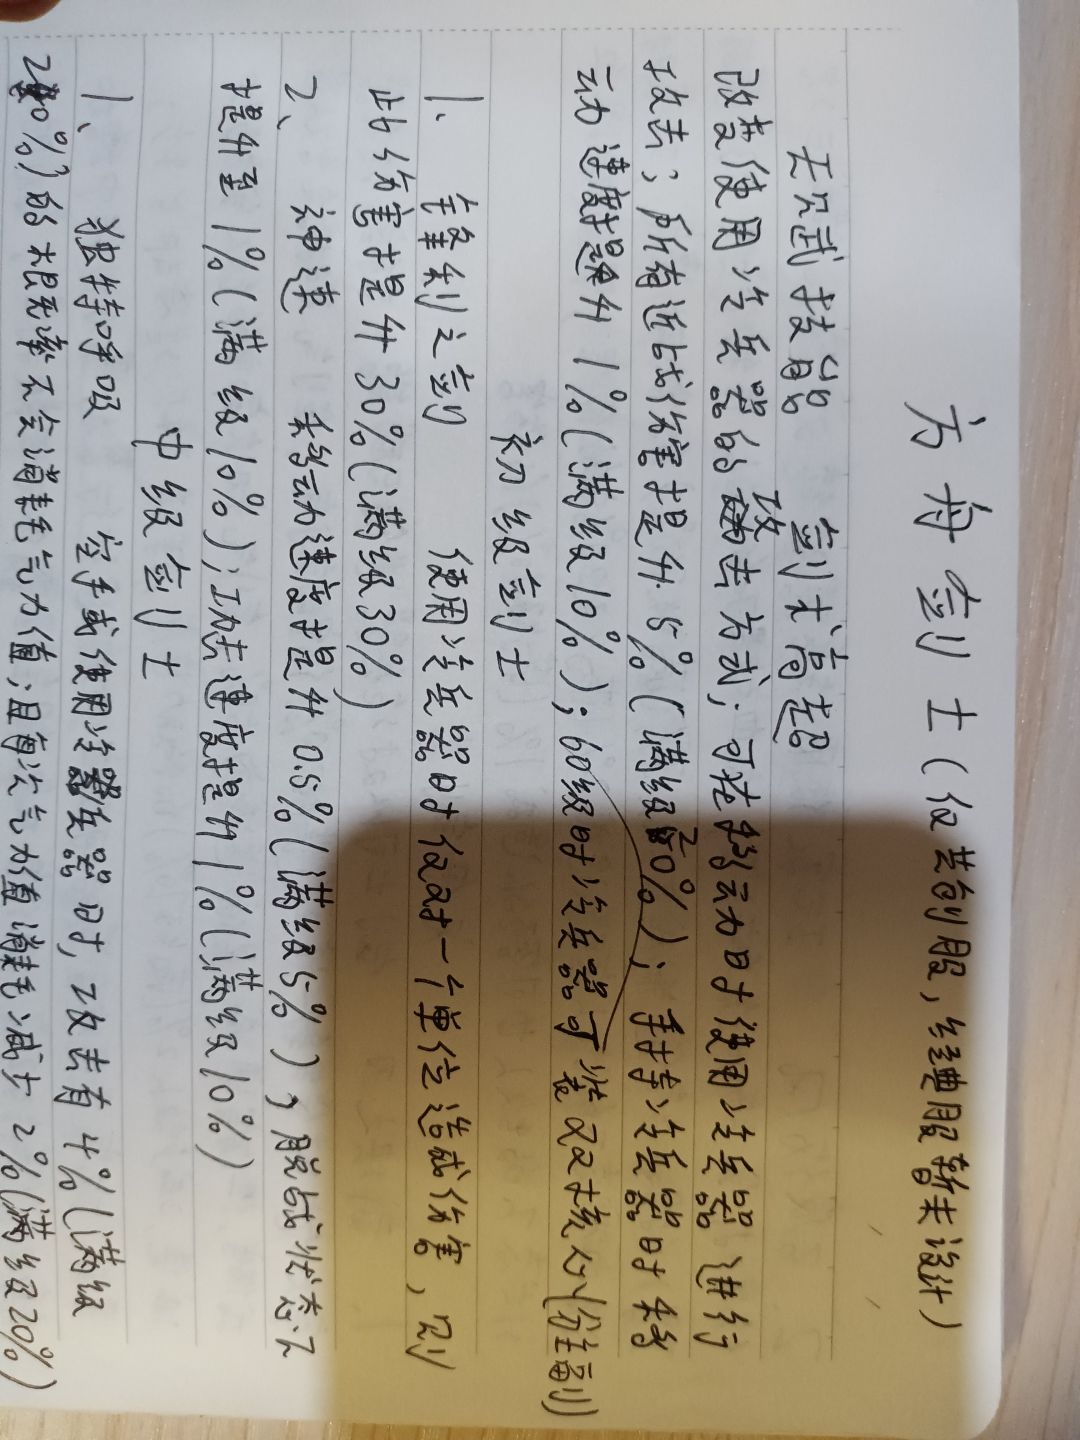 方舟剑士(仅共创服,经典服暂未设计)
天冗武技能 剑术高超
改变使用冷兵器的攻击方式;可在移动时使用冷兵器进行
攻击;所有近战伤害提升5%(满级50%);手持冷兵器时移
动速度提升1%(满级10%);60级时冷兵器可装双持(分主副)
初级剑士
1、 锋利之剑 使用冷兵器时仅对一个单位造成伤害,则
此伤害提升30%(满级30%)
2、 神速 移动速度提升0.5%(满级5%),脱战状态
提升至1%(满级10%);攻击速度提升1%(满级10%)
中级剑士
1、 独特呼吸 空手或使用冷兵器时,攻击有4%(满级
20%)的概率不会消耗气力值;且每次气力值消耗减少2%(满级20%)